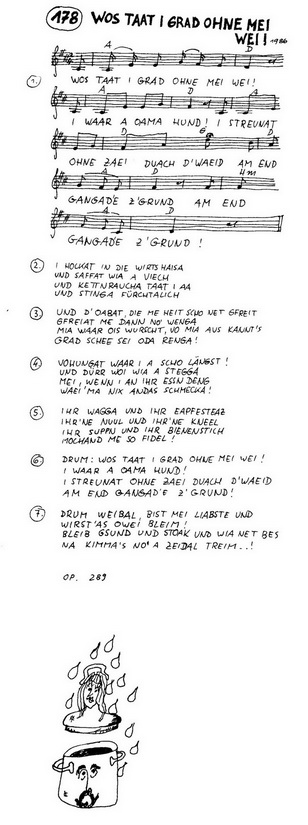 178 WOS TAAT I GRAD OHNE MEI
WEI! 1986
A D
1. WOS TAAT I GRAD OHNE MEI WEI!
A D A
I WAAR A OAMA HUND! I STREUNAT
D G D
OHNE ZAEI DUACH D'WAEID AM END
A D 4m
GANGAD'E Z'GRUND AM END
A D
GANGAD'E Z'GRUND!
2. I HOLKAT IN DIE WIRTSHAISA
UND SAFFAT WIA A VIECH
UND KETTNRAUCHA TAAT I AA
UND STINGA FÜRCHTALICH
3. UND D'OABAT, DIE ME HEIT SCHO NET GFREIT
GFREIAT ME DANN NO WENGA
MIA WAAR OIS WURSCHT, VO MIA AUS KANNT'S
GRAD SCHEE SEI ODA RENGA!
4. VOHUNGAT WAAR I A SCHO LÄNGST!
UND DÜRR WOI WIA A STEGGA
MEI, WENN I AN IHR ESSN DENG
WAEI'MA NIX ANDAS SCHMECKA!
5. IHR WAGGA UND IHR EAPFESTEAZ
IHR'NE NUUL UND IHR'NE KNEEL
IHR SUPPN UND IHR BIENENSTICH
MOCHAND ME SO FIDEL!
6. DRUM: WOS TAAT I GRAD OHNE MEI WEI!
I WAAR A OAMA HUND!
I STREUNAT OHNE ZAEI DUACH D'WAEID
AM END GANGAD'E Z'GRUND!
7. DRUM WEIBAL, BIST MEI LIABSTE UND
WIRST'AS OWEI BLEIM!
BLEIB GSUND UND STOAK UND WIA NET BES
NA KIMMA'S NO' A ZEIDAL TREIM..!
OP. 289